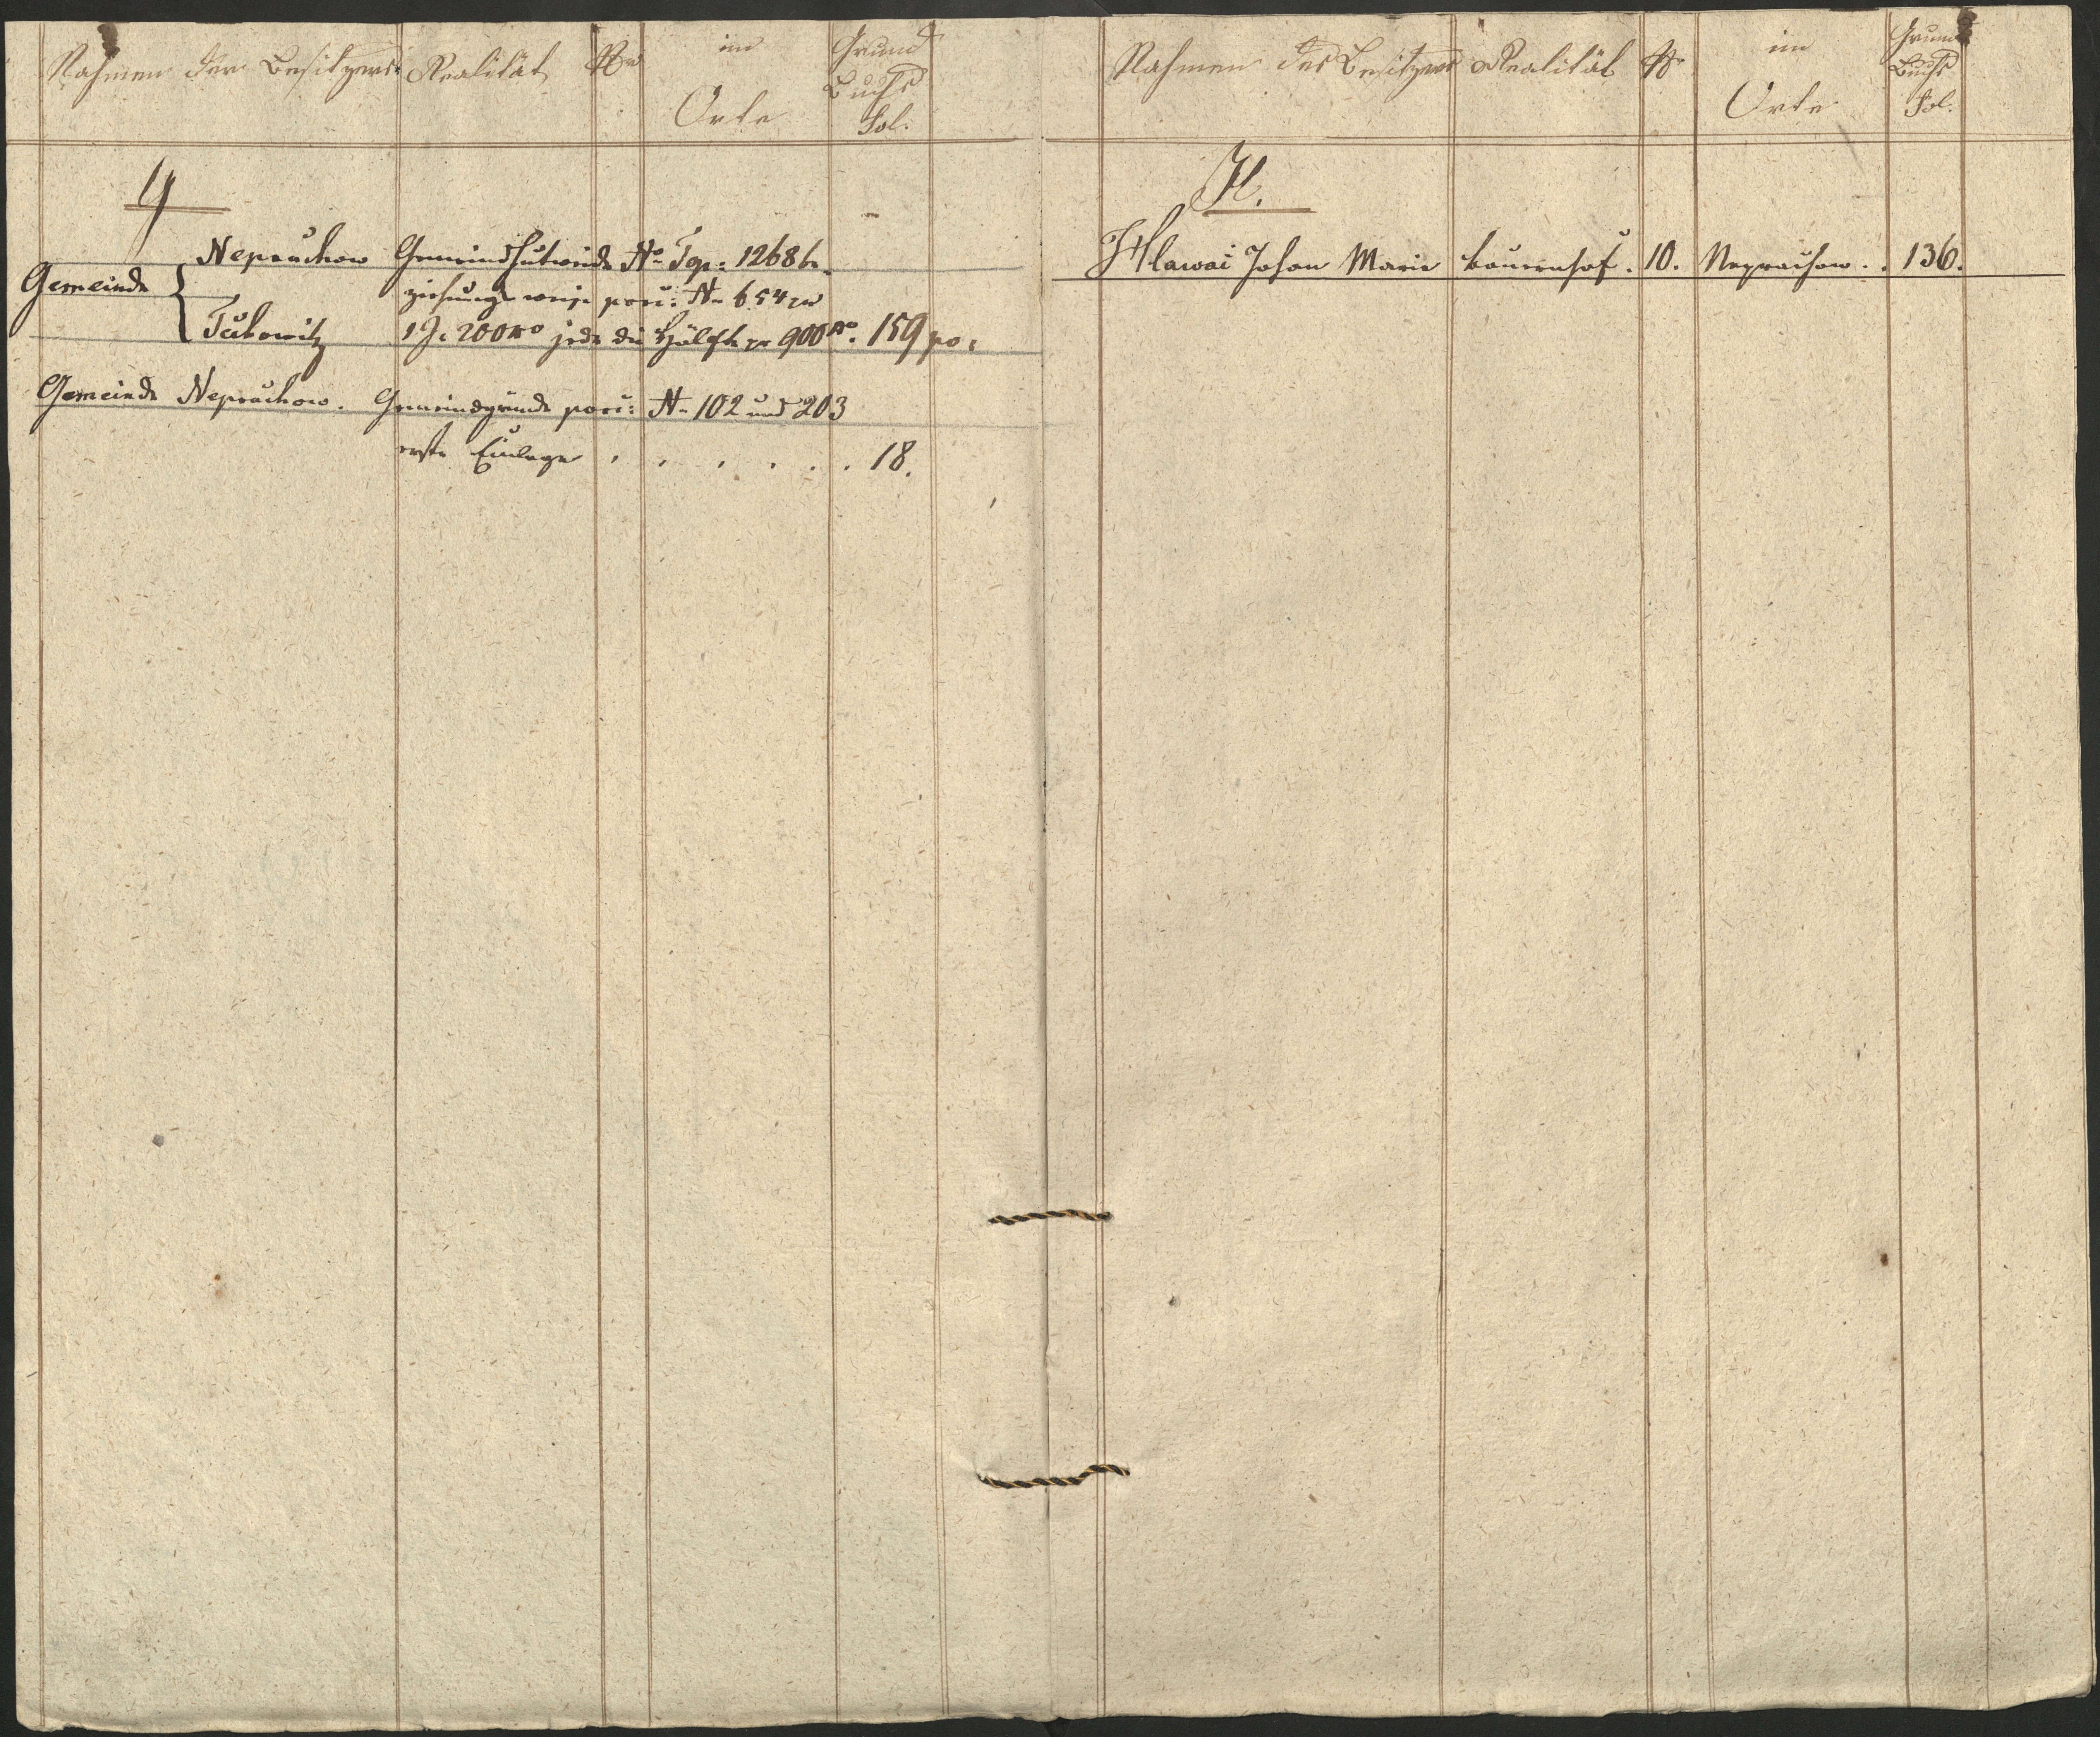 Nahmen der Besitzers
Realität
Nro
im
Orte
Grund
Buchs
Fol.
G
Gemeinde
Nepřuchow
Tučowitz
Gemeindhutweide No Top: 1268 be
ziehungsweise parz: No 654 zu
1 J. 200 □o jede die Hälfte pr 900 □o. 159 po:
Gemeinde Nepřuchow. Gemeindgründe parz: No 102 und 203
erste Einlage . . . . . . 18.
Nahmen des Besitzers
Realität
Nro
im
Orte
Grund
Buchs
Fol.
H.
Hlawai Johan Marie Bauernhof. 10. . . 136.